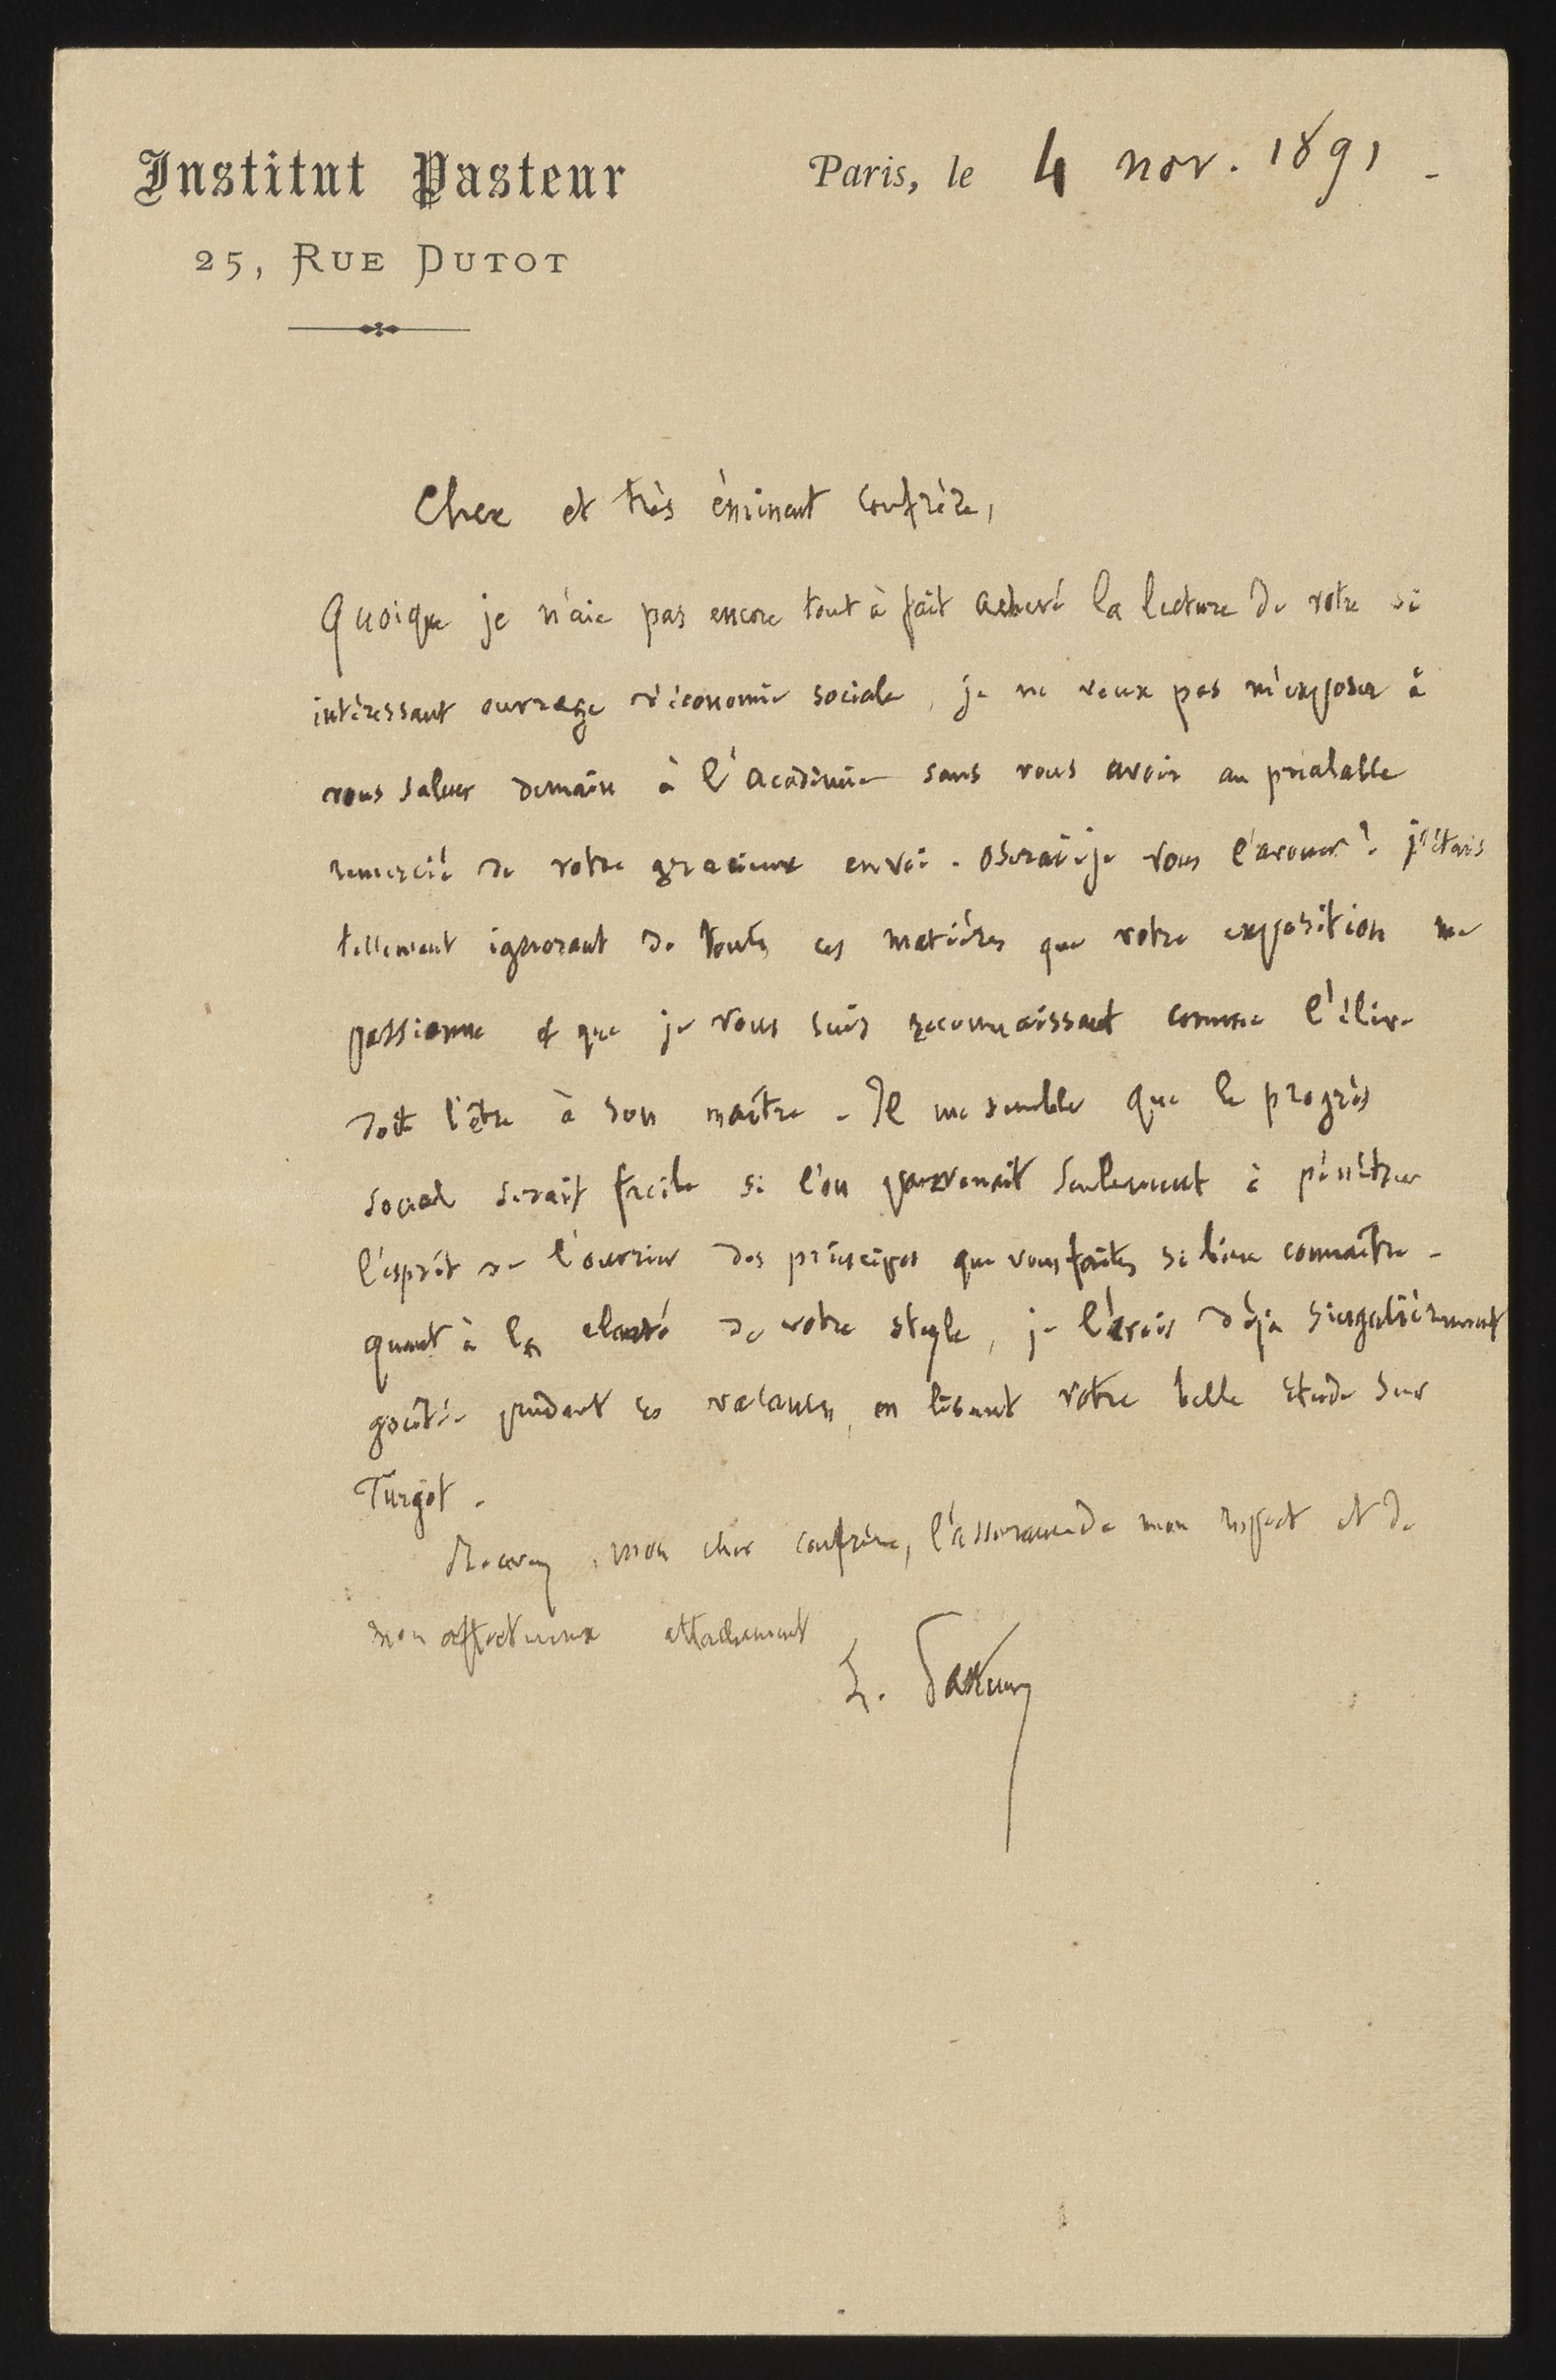 Institut Pasteur
25, RUE DUTOT
Paris, le 4 nov. 1891.
Cher et très éminent confrère,
Quoique je n'aie pas encore tout à fait achevé la lecture de votre si
intéressant ouvrage d'économie sociale, je ne veux pas m'exposer à
vous saluer demain à l'académie sans vous avoir au préalable
remercié de votre gracieux envoi. oserai-je vous l'avouer? j'étais
tellement ignorant de toutes ces matières que votre exposition me
passionne et que je vous suis reconnaissant comme l'élève
doit l'être à son maître. Il me semble que le progrès
social serait facile si l'on parvenait seulement à pénétrer
l'esprit de l'ouvrier des principes que vous faites si bien connaître.
quant à la clarté de votre style, je l'avais déjà singulièrement
goûtée pendant les vacances, en lisant votre belle étude sur
Turgot.
Recevez, mon cher confrère, l'assurance de mon respect et de
mon affectueux attachement
L. Pasteur